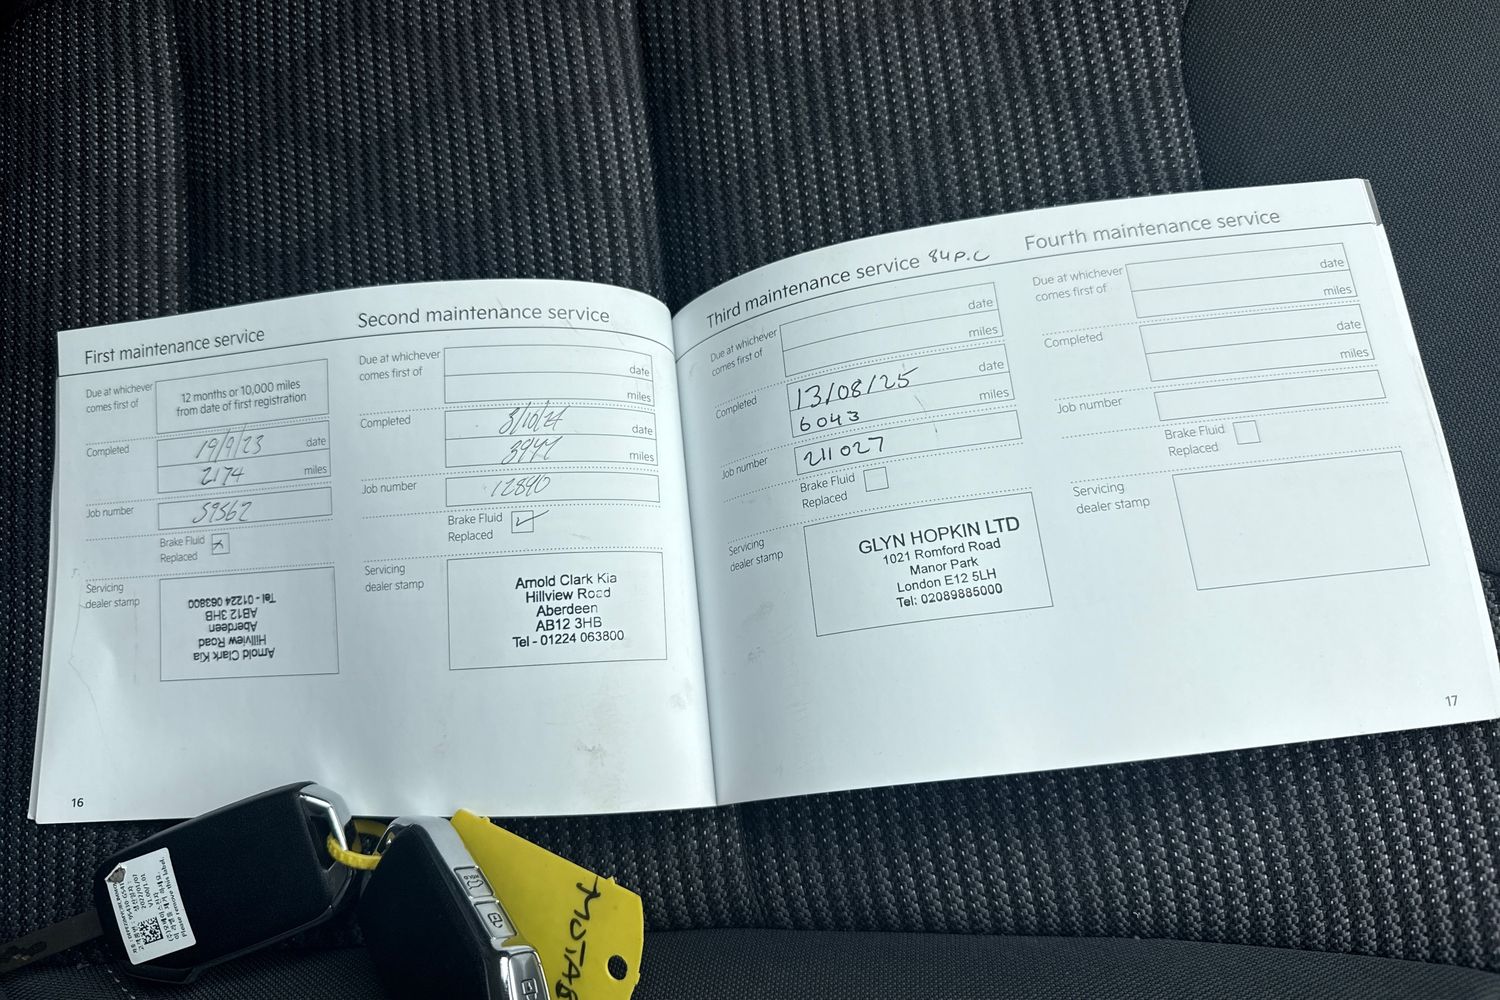 First maintenance service
Due at whichever
comes first of
12 months or 10,000 miles
from date of first registration
Completed
19/9/23 date
2174 miles
Job number
59562
Brake Fluid
Replaced
Servicing
dealer stamp
Arnold Clark Kia
Hillview Road
Aberdeen
AB12 3HB
Tel - 01224 063800
16
Second maintenance service
Due at whichever
comes first of
date
miles
Completed
3/10/24 date
miles
Job number
12890
Brake Fluid
Replaced
Servicing
dealer stamp
Arnold Clark Kia
Hillview Road
Aberdeen
AB12 3HB
Tel - 01224 063800
Third maintenance service 84P.C
Due at whichever
comes first of
date
miles
Completed
13/08/25 date
6043 miles
Job number
211027
Brake Fluid
Replaced
Servicing
dealer stamp
GLYN HOPKIN LTD
1021 Romford Road
Manor Park
London E12 5LH
Tel: 02089885000
Fourth maintenance service
Due at whichever
comes first of
date
miles
Completed
date
miles
Job number
Brake Fluid
Replaced
Servicing
dealer stamp
17
Please remove this label.